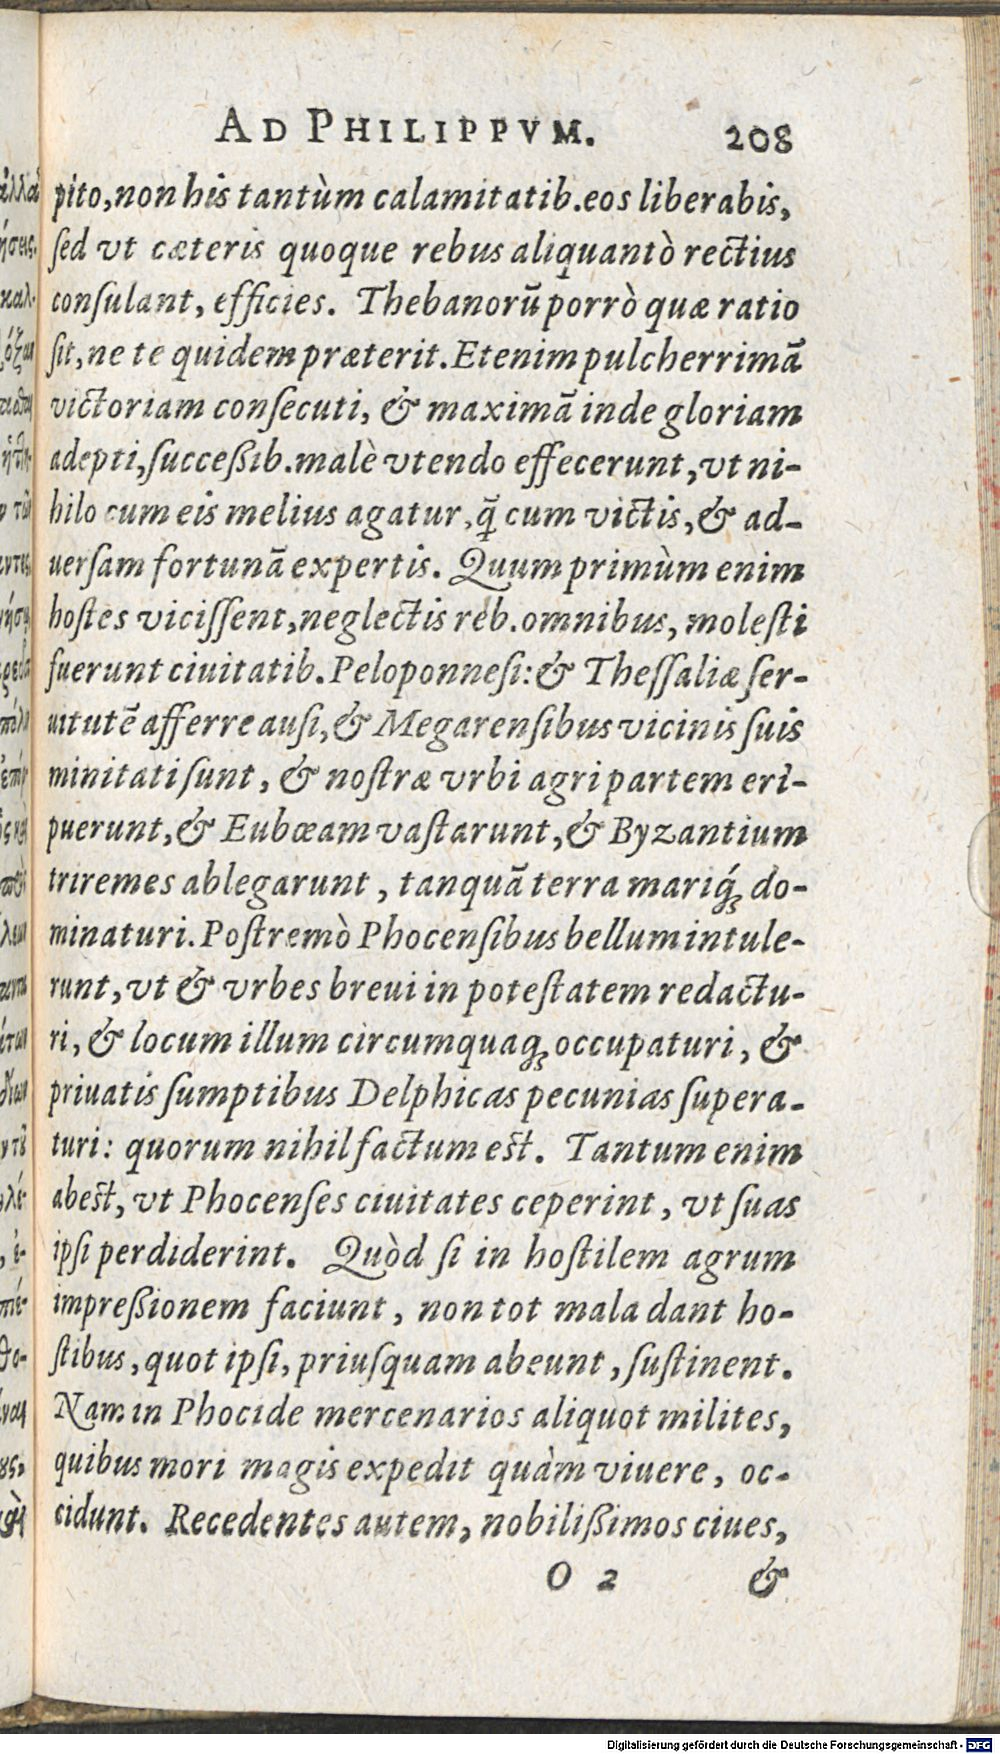 AD PHILIPPVM. 208
pito, non his tantùm calamitatib. eos liberabis,
sed vt cæteris quoque rebus aliquantò rectius
consulant, efficies. Thebanorũ porrò quæ ratio
sit, ne te quidem præterit. Etenim pulcherrimã
victoriam consecuti, & maximã inde gloriam
adepti, succeßib. malè vtendo effecerunt, vt ni-
hilo cum eis melius agatur, q̃ cum victis, & ad-
uersam fortunã expertis. Quum primùm enim
hostes vicissent, neglectis reb. omnibus, molesti
fuerunt ciuitatib. Peloponnesi: & Thessaliæ ser-
uitutẽ afferre ausi, & Megarensibus vicinis suis
minitati sunt, & nostræ vrbi agri partem eri-
puerunt, & Eubœam vastarunt, & Byzantium
triremes ablegarunt, tanquã terra mariq́; do-
minaturi. Postremò Phocensibus bellum intule-
runt, vt & vrbes breui in potestatem redactu-
ri, & locum illum circumquaq; occupaturi, &
priuatis sumptibus Delphicas pecunias supera-
turi: quorum nihil factum est. Tantum enim
abest, vt Phocenses ciuitates ceperint, vt suas
ipsi perdiderint. Quòd si in hostilem agrum
impreßionem faciunt, non tot mala dant ho-
stibus, quot ipsi, priusquam abeunt, sustinent.
Nam in Phocide mercenarios aliquot milites,
quibus mori magis expedit quàm viuere, oc-
cidunt. Recedentes autem, nobilißimos ciues,
O 2 &
Digitalisierung gefördert durch die Deutsche Forschungsgemeinschaft - DFG